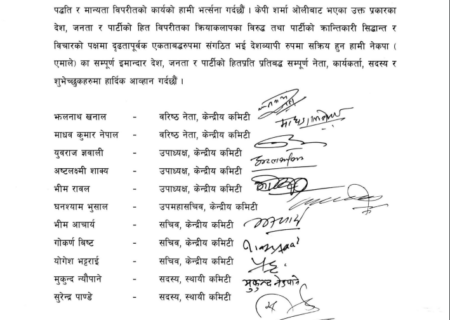 पद्धति र मान्यता विपरीतको कार्यको हामी भर्त्सना गर्दछौं । केपी शर्मा ओलीबाट भएका उक्त प्रकारका
देश, जनता र पार्टीको हित विपरीतका क्रियाकलापका विरुद्ध तथा पार्टीको क्रान्तिकारी सिद्धान्त र
विचारको पक्षमा दृढतापूर्वक एकताबद्धरुपमा संगठित भई देशव्यापी रुपमा सक्रिय हुन हामी नेकपा (
एमाले) का सम्पूर्ण इमान्दार देश, जनता र पार्टीको हितप्रति प्रतिबद्ध सम्पूर्ण नेता, कार्यकर्ता, सदस्य र
शुभेच्छुकहरुमा हार्दिक आव्हान गर्दछौं ।
झलनाथ खनाल - वरिष्ठ नेता, केन्द्रीय कमिटी
माधव कुमार नेपाल - वरिष्ठ नेता, केन्द्रीय कमिटी
युवराज ज्ञवाली - उपाध्यक्ष, केन्द्रीय कमिटी
अष्टलक्ष्मी शाक्य - उपाध्यक्ष, केन्द्रीय कमिटी
भीम रावल - उपाध्यक्ष, केन्द्रीय कमिटी
घनश्याम भुसाल - उपमहासचिव, केन्द्रीय कमिटी
भीम आचार्य - सचिव, केन्द्रीय कमिटी
गोकर्ण बिष्ट - सचिव, केन्द्रीय कमिटी
योगेश भट्टराई - सचिव, केन्द्रीय कमिटी
मुकुन्द न्यौपाने - सदस्य, स्थायी कमिटी मुकुन्द न्यौपाने
सुरेन्द्र पाण्डे - सदस्य, स्थायी कमिटी